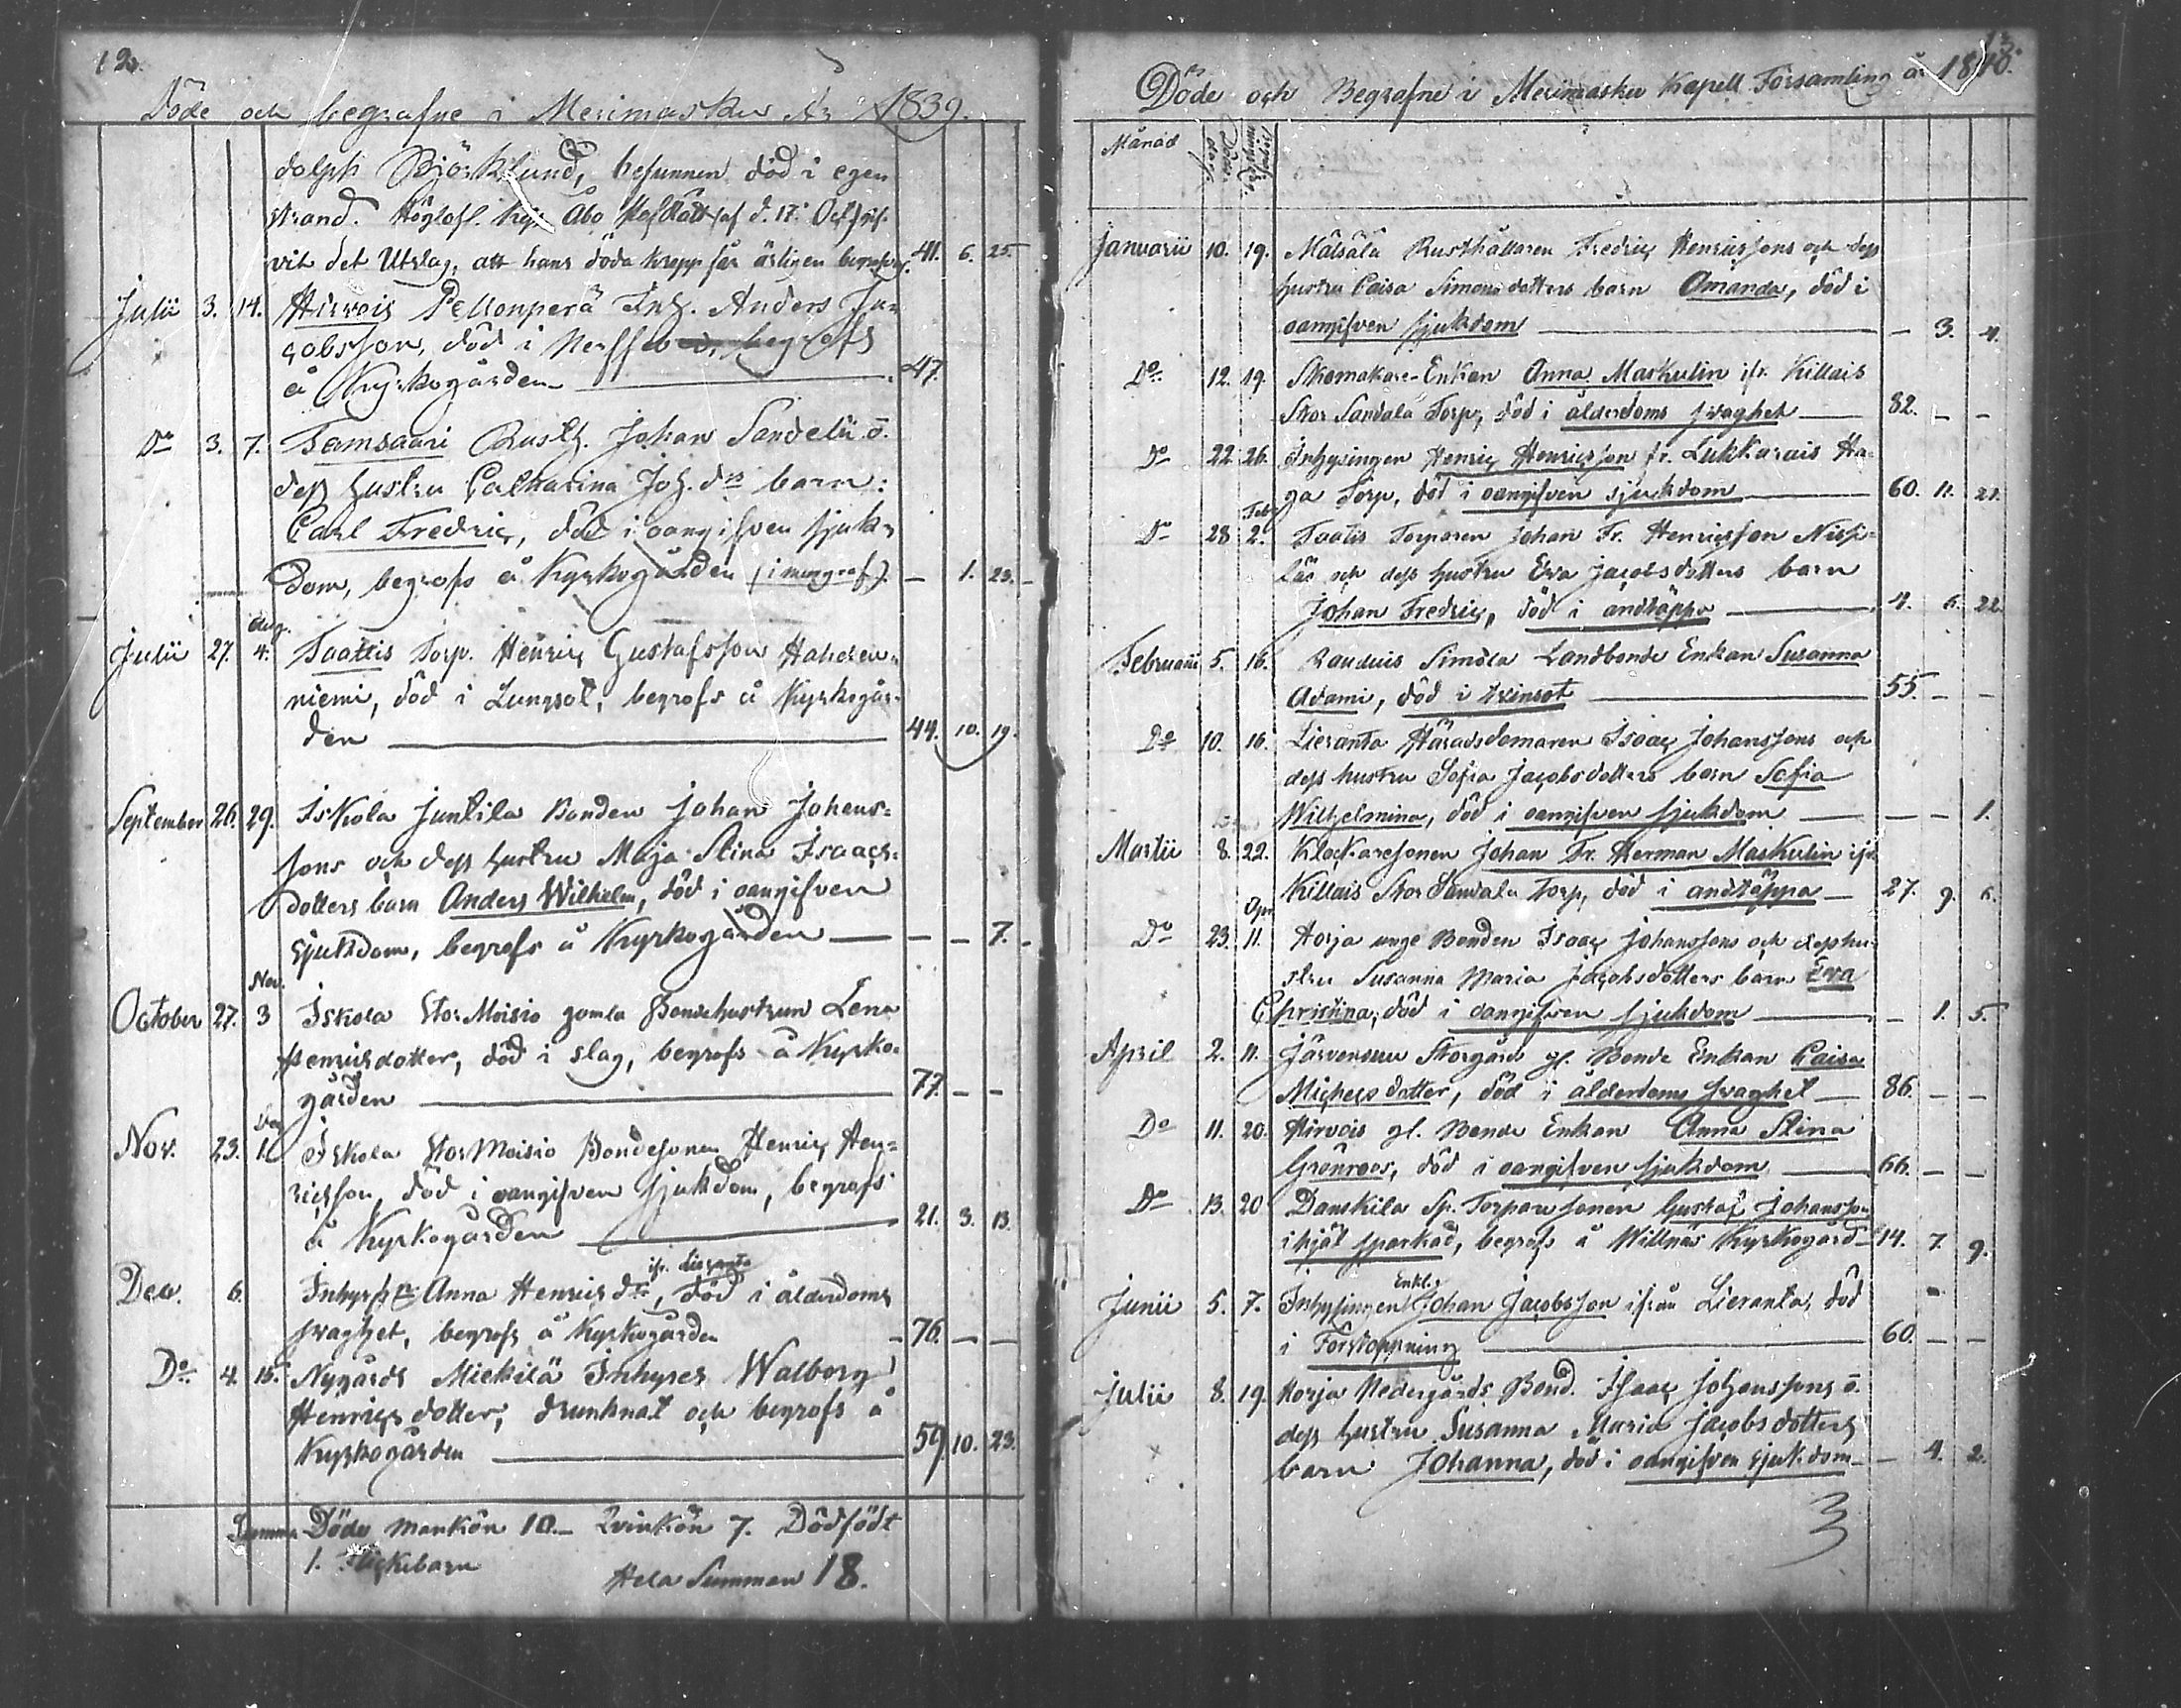 12.
Döde och begrafne i Merimasku År 1839.
dolph Björklund, befunnen död i egen
strand. Höglofl. Kejs. Åbo HofRätt haf. d. 17. Oct. gif-
vit det Utslag, att hans döda kropp får ärligen begrafvas. 41. 6. 25.
Julii 3. 14. Hirvois Pellonperä Inh. Anders Ja-
cobsson, död i Nerffeber, begrofs
å Kyrkogården 47.
Do 3. 7. Samsaari Rusth. Johan Sandelii o.
dess hustru Catharina Joh. drs barn:
Carl Fredric, död i oangifven sjuk-
dom, begrofs å Kyrkogården (i murgraf). — 1. 23.
Aug.
Julii 27. 4. Taattis Torp. Henric Gustafsson Hahden-
niemi, död i Lungsot, begrofs å Kyrkogår-
den 44. 10. 19.
September 26. 29. Iskola Juntila Bonden Johan Johans-
sons och dess hustru Maja Stina Isaacs-
dotters barn Anders Wilhelm, död i oangifven
sjukdom, begrofs å Kyrkogården — — 7.
Nov.
October 27. 3 Iskola StorMoisio gamla Bondehustrun Lena
Henricsdotter, död i slag, begrofs å Kyrko-
gården 77. — —
Dec.
Nov. 23. 1. Iskola StorMoisio Bondesonen Henric Hen-
ricsson, död i oangifven sjukdom, begrofs
å Kyrkogården 21. 3. 13.
ifr. Lieranta
Dec. 6. Inhyses Anna Henricsdr, död i ålderdoms
svaghet, begrofs å Kyrkogården 76. — —
Do. 4. 15. Nygårds Mickilä Inhyses Walborg
Henricsdotter, drunknat och begrofs å
Kyrkogården 59. 10. 23.
Summa Döde Mankön 10.— Qvinkön 7. Dödfödt
1. Flickebarn Hela Summan 18.
13.
Döde och Begrafne i Merimasku Kapell Församling år 1840.
Månad Döds-dag. Begrafnings dag.
Januarii 10. 19. Mälsälä Rusthållaren Fredric Henricssons och dess
hustru Caisa Simonsdotters barn Amanda, död i
oangifven sjukdom — 3. 4.
Do 12. 19. Skomakare-Enkan Anna Maskulin ifr. Killais
Stor Sandala Torp, död i ålderdoms svaghet 82. — —
Do 22. 26. Inhysingen Henric Henricsson fr. Lukkarais Ha-
ga Torp, död i oangifven sjukdom 60. 11. 21.
Feb.
Do 28 2. Taatis Torparen Johan Fr. Henricsson Nissi-
läs och dess hustru Eva Jacobsdotters barn
Johan Fredric, död i andtäppa 4. 6. 22.
Februarii 5. 16. Rauduis Simola Landbonde Enkan Susanna
Adami, död i tvinsot 55. — —
Do 10. 16. Lieranta Häradsdomaren Isaac Johanssons och
dess hustru Sofia Jacobsdotters barn Sofia
Wilhelmina, död i oangifven sjukdom — — 1.
Martii 8. 22. Klockaresonen Johan Fr. Herman Maskulin ifr.
Killais Stor Sandala Torp, död i andtäppa 27. 9. 6.
Apr.
Do 23. 11. Horja unge Bonden Isaac Johanssons och dess hu-
stru Susanna Maria Jacobsdotters barn Eva
Christina, död i oangifven sjukdom — 1. 5.
April 2. 11. Järvensuu Storgårds gl. Bonde Enkan Caisa
Michelsdotter, död i ålderdoms svaghet 86. — —
Do 11. 20. Hirvois gl. Bonde Enkan Anna Stina
Grönroos, död i oangifven sjukdom 66. — —
Do 13. 20 Danskila Sp. Torparesonen Gustaf Johansson
ihjäl sparkad, begrofs å Willnäs Kyrkogård 14. 7. 9.
Enkl.
Junii 5. 7. Inhysingen Johan Jacobsson ifrån Lieranta, död
i Förstoppning 60. — —
Julii 8. 19. Horja Nedergårds Bond. Isaac Johanssons o.
dess hustru Susanna Maria Jacobsdotters
barn Johanna, död i oangifven sjukdom — 4. 2.